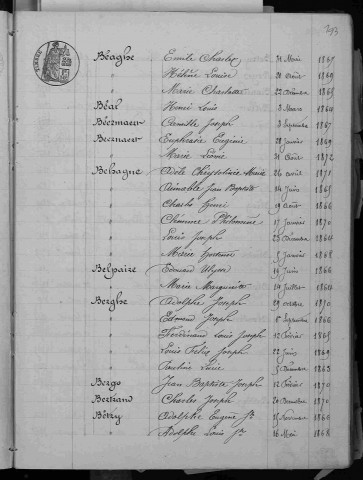 293
TIMBRE
Béaghe Emile Charles 31 Mars 1867
" Hélène Louise 21 Août 1869
" Marie Charlotte 22 Décembre 1865
Béal Henri Louis 3 Mars 1864
Béczmaert Camille Joseph 3 Septembre 1867
Beeznaert Euphrasie Eugénie 28 Janvier 1869
" Marie Léonie 21 Août 1872
Behagne Adèle Chrysolinée Marie 24 Avril 1871
" Aimable Jean Baptiste 24 Juin 1865
" Charles Henri 19 Août 1866
" Philomène 17 Janvier 1870
" Louis Joseph 23 Décembre 1864
" Marie 5 Janvier 1868
Belpaire Edouard Ulysse 19 Juin 1866
" Marie Marguerite 14 Juillet 1864
Berghe Adolphe Joseph 29 Octobre 1870
" Edmond Joseph 1er Septembre 1866
" Ferdinand Louis Joseph 12 Février 1865
" Louis Félix Joseph 22 Juin 1869
" Pauline Lucie 5 Décembre 1863
Bergo Jean Baptiste Joseph 12 Février 1870
Bertrand Charles Joseph 20 Décembre 1870
Bétry Adolphe Eugène Jh 15 Novembre 1860
" Adolphe Louis Jh 16 Mai 1868